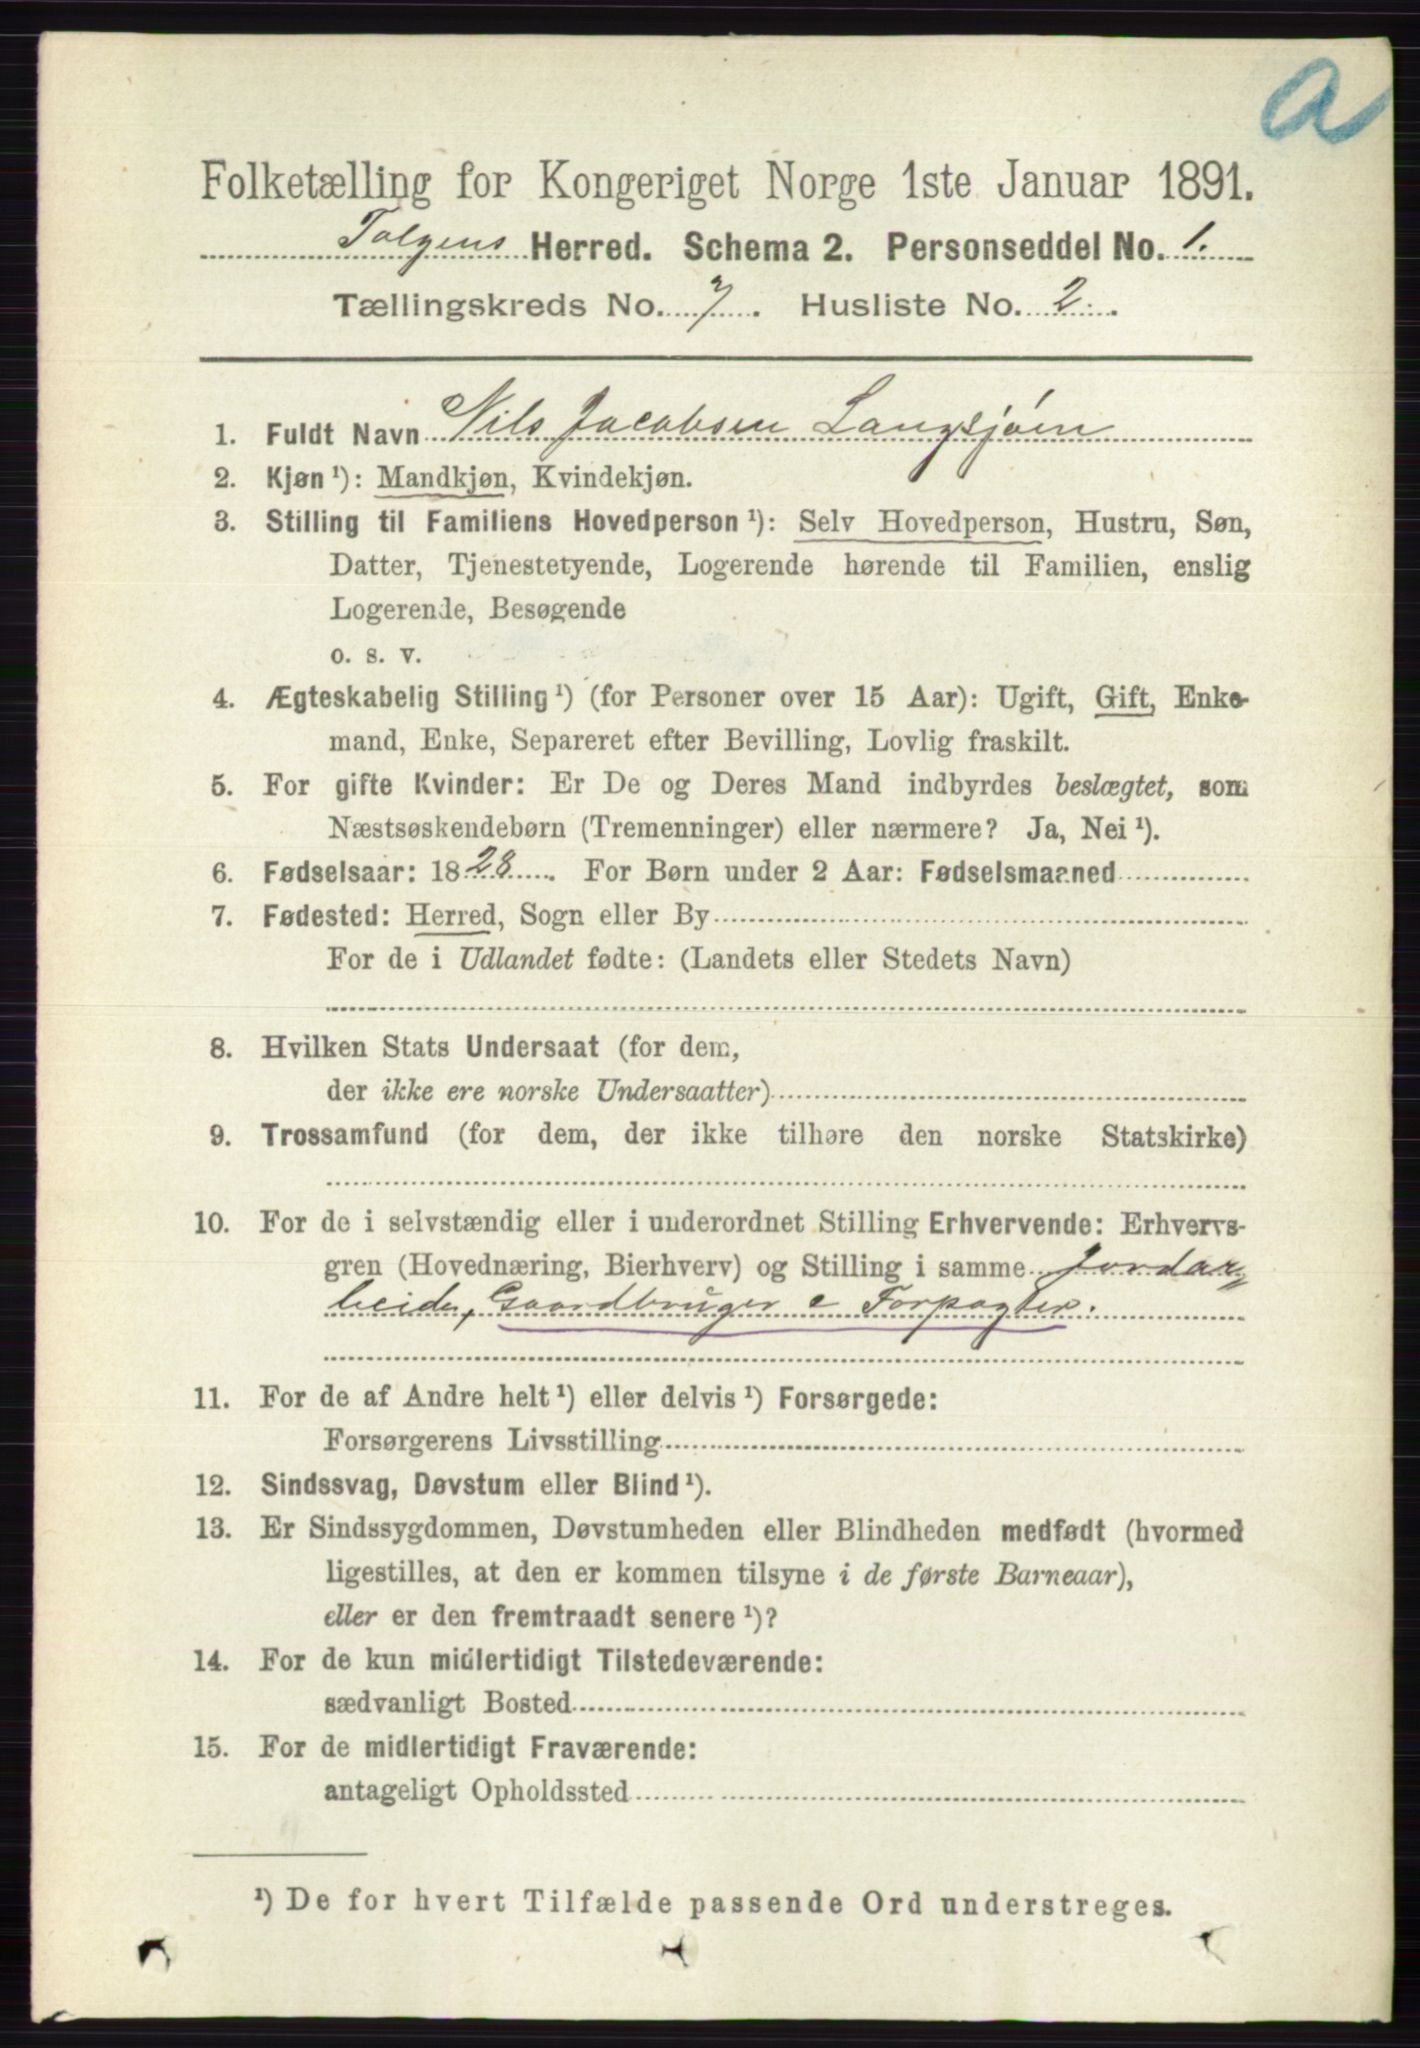 a
Folketælling for Kongeriget Norge 1ste Januar 1891.
Tolgens Herred. Schema 2. Personseddel No. 1.
Tællingskreds No. 7. Husliste No. 2.
1. Fuldt Navn Nils Jacobsen Langsjøen
2. Kjøn ¹): Mandkjøn, Kvindekjøn.
3. Stilling til Familiens Hovedperson ¹): Selv Hovedperson, Hustru, Søn,
Datter, Tjenestetyende, Logerende hørende til Familien, enslig
Logerende, Besøgende
o. s. v.
4. Ægteskabelig Stilling ¹) (for Personer over 15 Aar): Ugift, Gift, Enke-
mand, Enke, Separeret efter Bevilling, Lovlig fraskilt.
5. For gifte Kvinder: Er De og Deres Mand indbyrdes beslægtet, som
Næstsøskendebørn (Tremenninger) eller nærmere? Ja, Nei ¹).
6. Fødselsaar: 1828. For Børn under 2 Aar: Fødselsmaaned
7. Fødested: Herred, Sogn eller By
For de i Udlandet fødte: (Landets eller Stedets Navn)
8. Hvilken Stats Undersaat (for dem,
der ikke ere norske Undersaatter)
9. Trossamfund (for dem, der ikke tilhøre den norske Statskirke)
10. For de i selvstændig eller i underordnet Stilling Erhvervende: Erhvervs-
gren (Hovednæring, Bierhverv) og Stilling i samme Jordar-
beider, Gaardbruger e Forpagter.
11. For de af Andre helt ¹) eller delvis ¹) Forsørgede:
Forsørgerens Livsstilling
12. Sindssvag, Døvstum eller Blind ¹).
13. Er Sindssygdommen, Døvstumheden eller Blindheden medfødt (hvormed
ligestilles, at den er kommen tilsyne i de første Barneaar),
eller er den fremtraadt senere ¹)?
14. For de kun midlertidigt Tilstedeværende:
sædvanligt Bosted
15. For de midlertidigt Fraværende:
antageligt Opholdssted
¹) De for hvert Tilfælde passende Ord understreges.